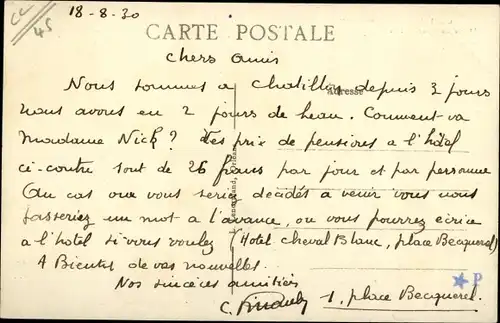 18-8-30
CC 45
CARTE POSTALE
Chers Amis
Nous sommes a Chatillon depuis 3 jours
Adresse
nous avons eu 2 jours de beau. Comment va
Madame Nick? Les prix de pensions a l'hôtel
ci-contre sont de 26 francs par jour et par personne
Au cas ou vous seriez décidés a venir vous nous
fasseriez un mot a l'avance, ou vous pourrez ecrire
a l'hotel si vous voulez (Hotel Cheval Blanc, place Becquerel)
A Bientot de vos nouvelles.
Nos sincères amitiés
C. 1, place Becquerel.
P